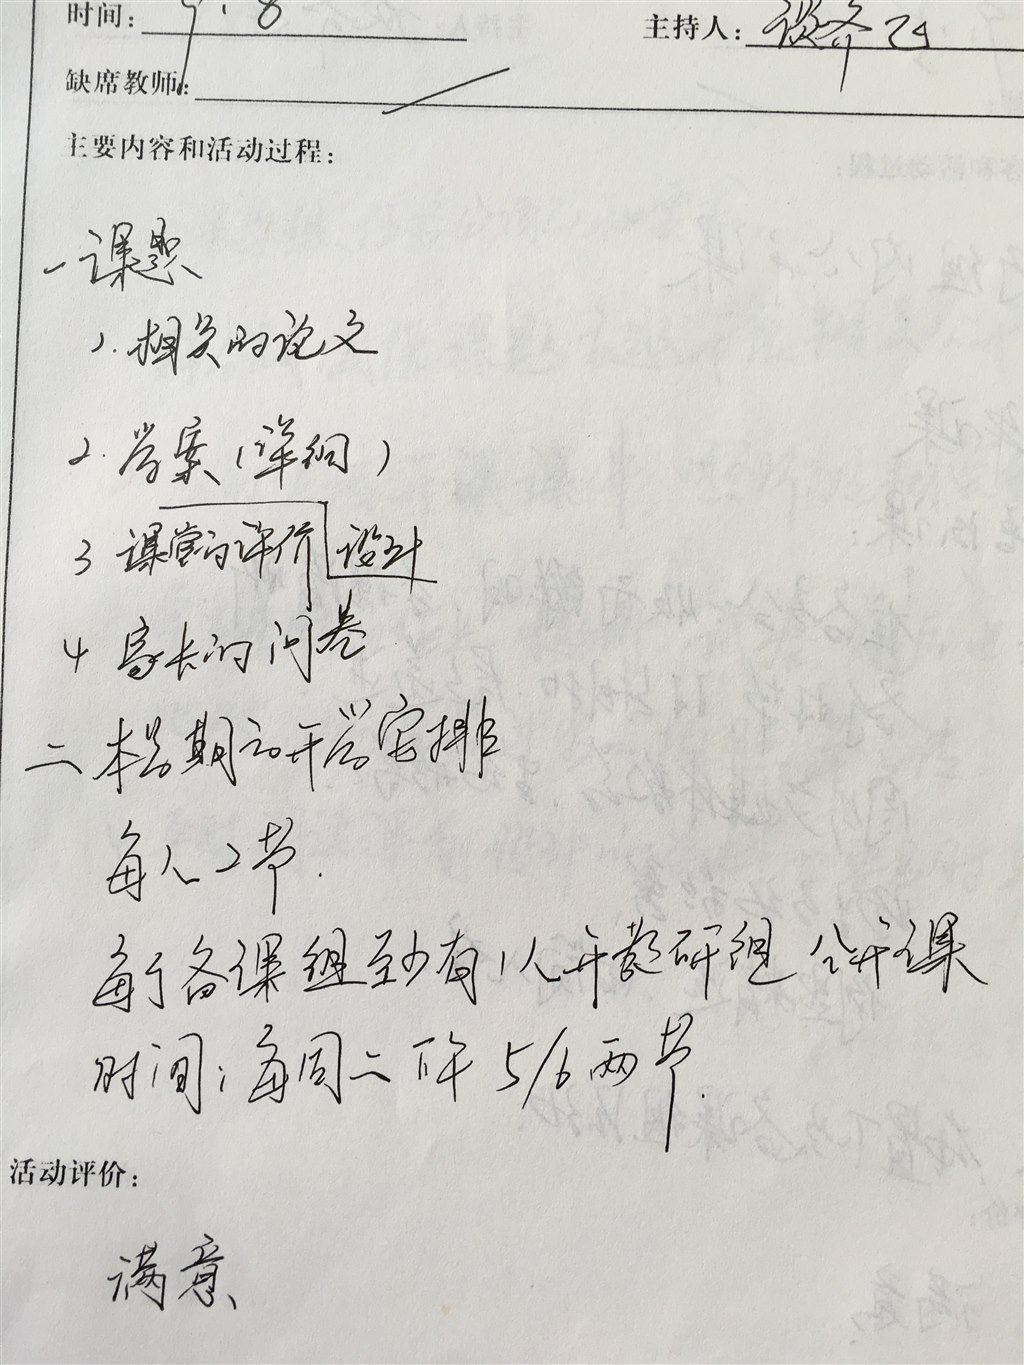 时间：9.8 主持人：谈
缺席教师：
主要内容和活动过程：
一 课题
1. 相关的论文
2. 学案（详细）
3 课堂的评价设计
4 家长的问卷
二、本学期 开学安排
每人2节.
每个备课组至少有1人开教研组公开课
时间：每周二下午 5/6 两节.
活动评价：
满意